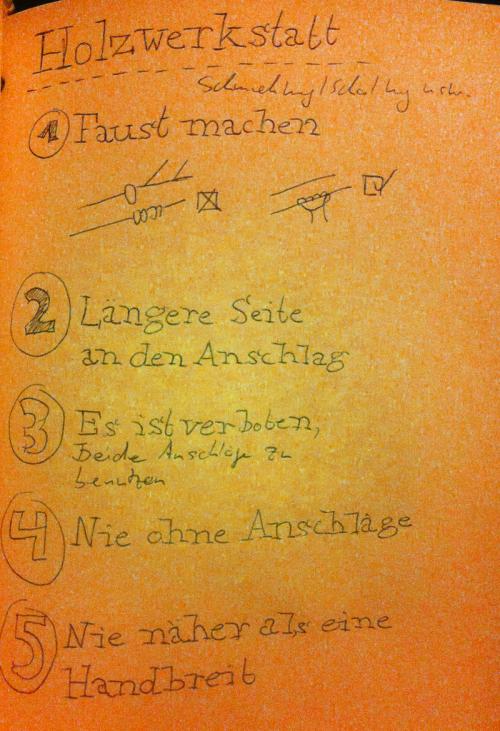 Holzwerkstatt
1 Faust machen
2 Längere Seite
an den Anschlag
3 Es ist verboten,
Beide Anschläge zu
benutzen
4 Nie ohne Anschläge
5 Nie näher als eine
Handbreit